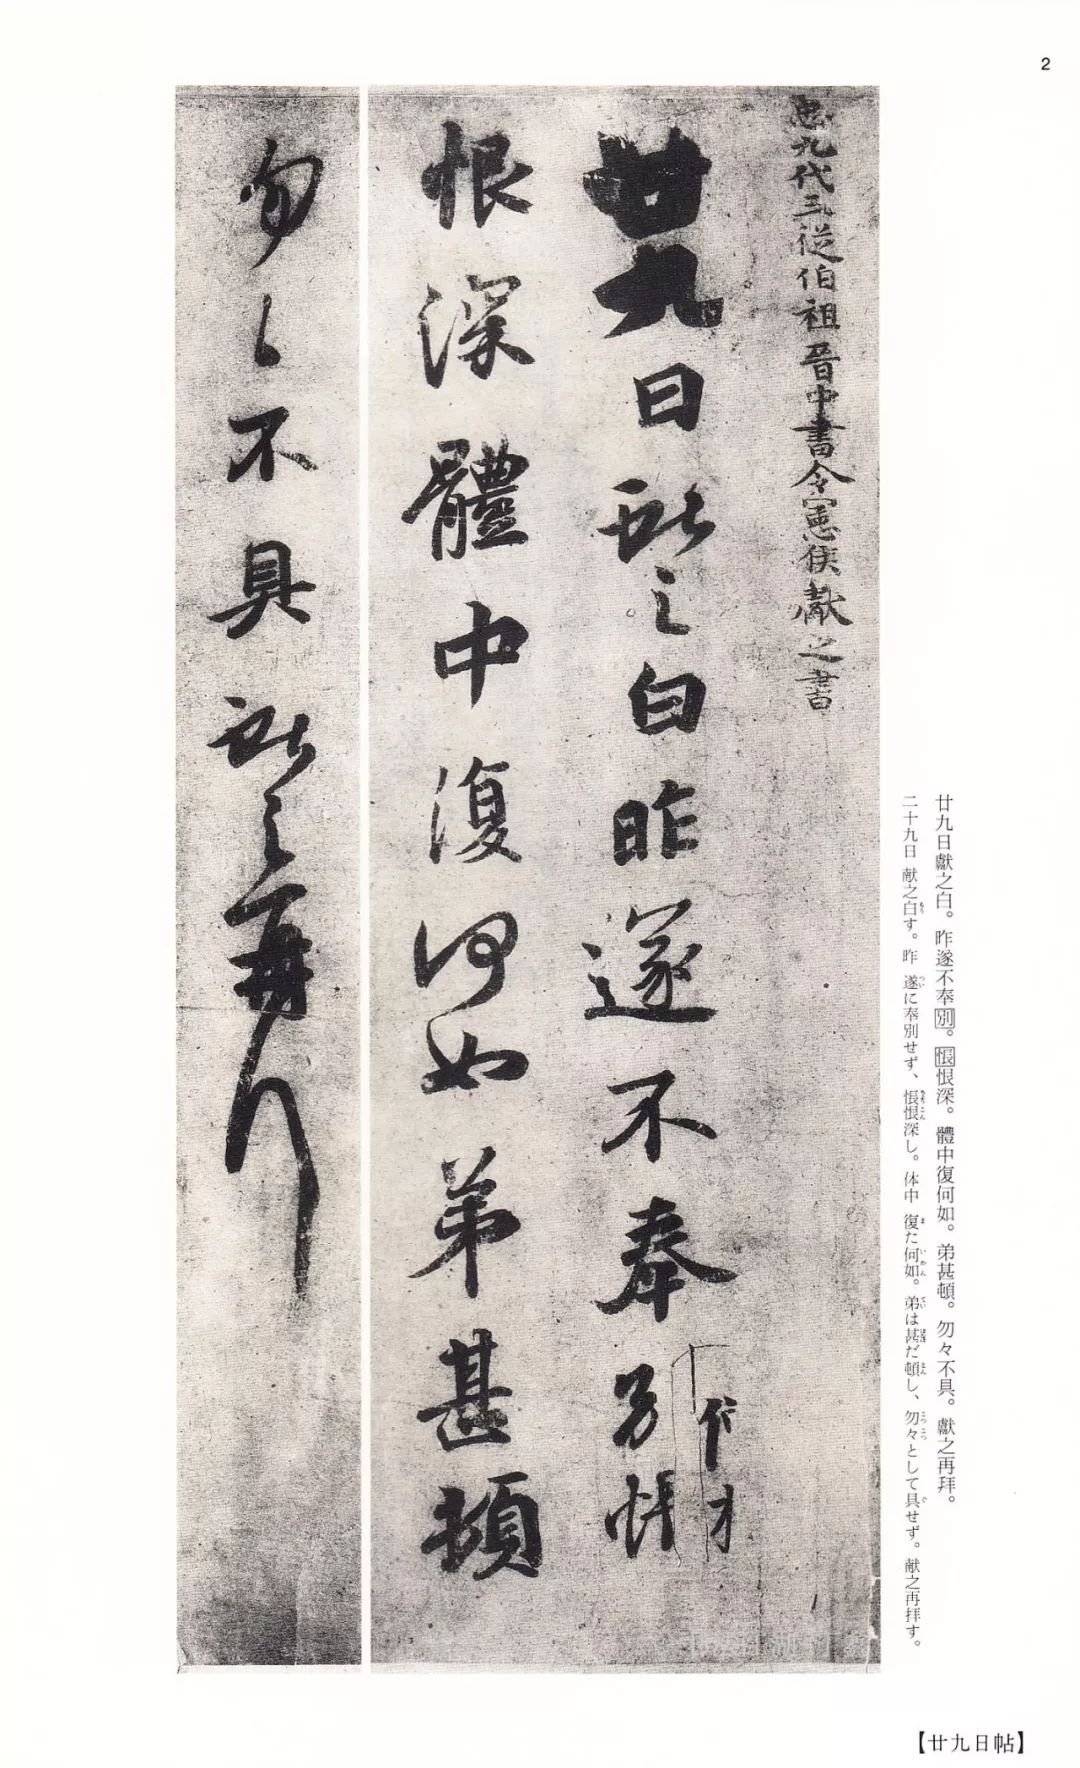 2
廿九日獻之白。昨遂不奉別。悵恨深。體中復何如。弟甚頓。勿々不具。獻之再拜。
二十九日 献之白す。昨 遂に奉別せず、悵恨深し。体中 復た何如。弟は甚だ頓し、勿々として具せず。献之再拝す。
九代三從伯祖晉中書令憲侯獻之書
廿九日獻之白昨遂不奉別悵
恨深體中復何如弟甚頓
勿〻不具獻之再拜
【廿九日帖】